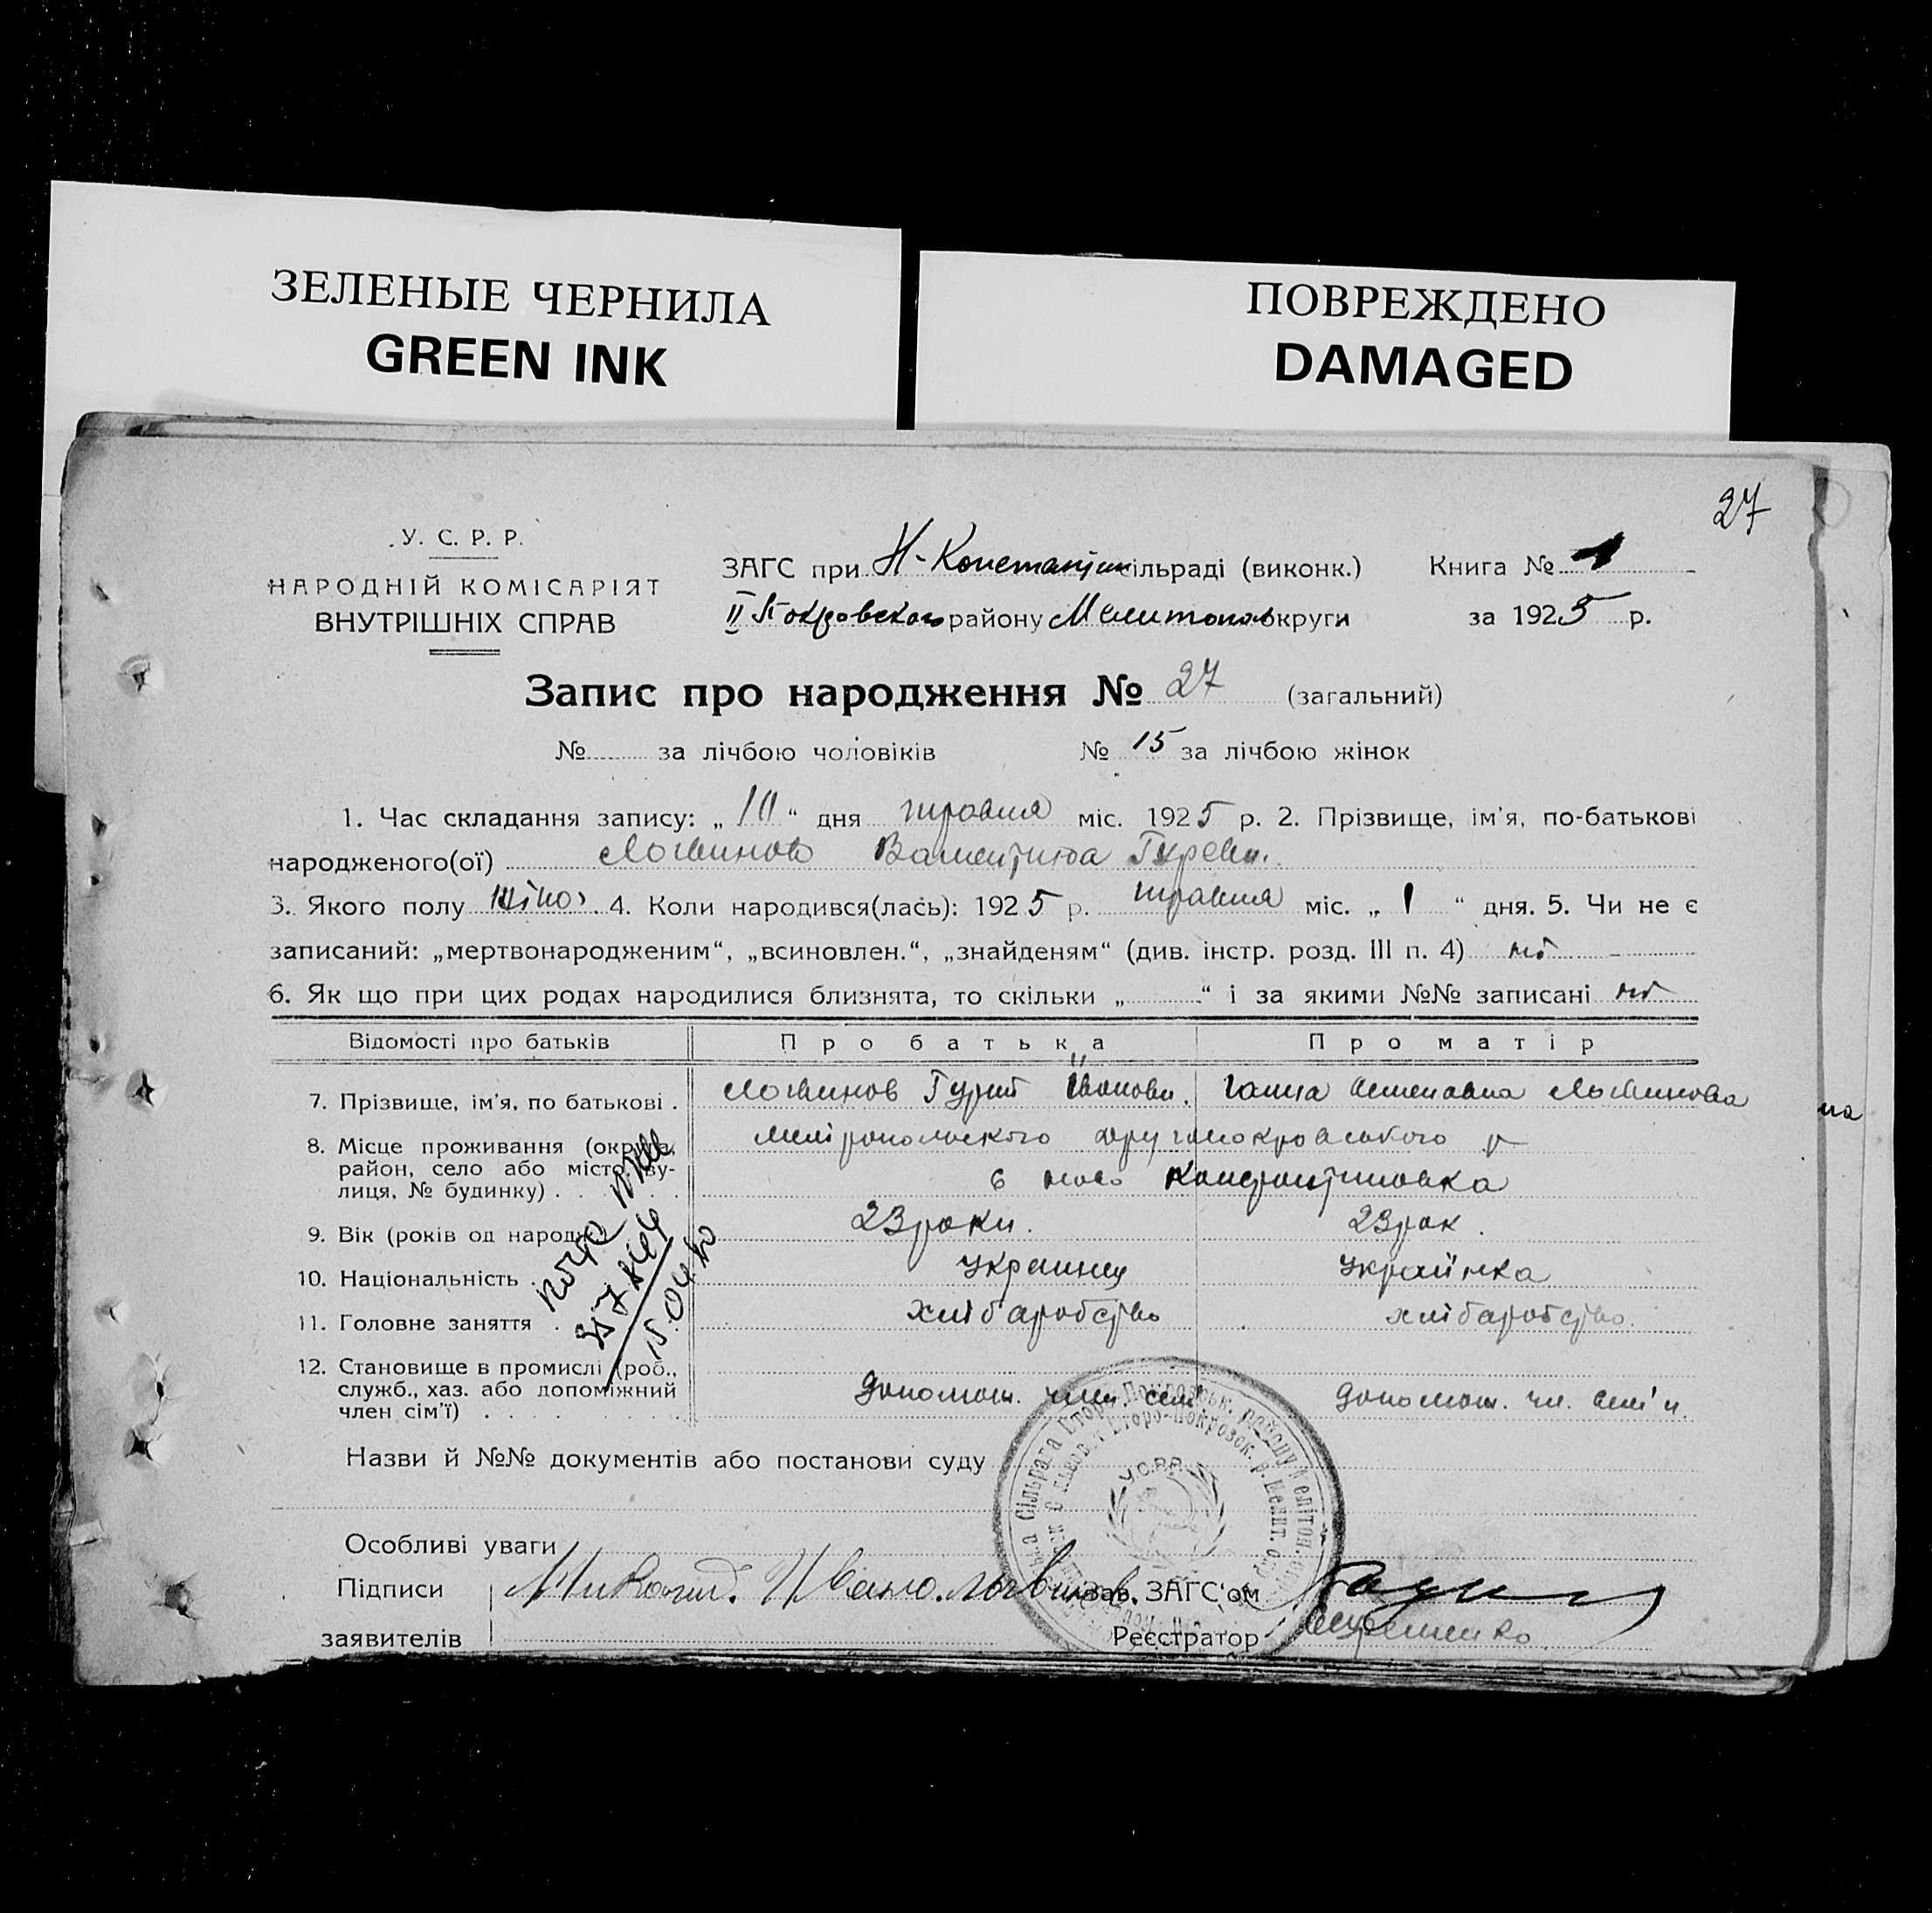 ЗЕЛЕНЫЕ ЧЕРНИЛА
GREEN INK
ПОВРЕЖДЕНО
DAMAGED
27
У. С. Р. Р.
НАРОДНІЙ КОМІСАРІЯТ
ВНУТРІШНІХ СПРАВ
ЗАГС при Н-Константин сільраді (виконк.) Книга № 1
II Покровского району Мелитопол округи за 1925 р.
Запис про народження № 27 (загальний)
№ за лічбою чоловіків № 15 за лічбою жінок
1. Час складання запису: „ “ дня травня міс. 1925 р. 2. Прізвище, ім'я, по-батькові
народженого(ої) Логвинова Валентина
3. Якого полу жіноч. 4. Коли народився(лась): 1925 р. травня міс. „ 1 “ дня. 5. Чи не є
записаний: „мертвонародженим“, „всиновлен.“, „знайденям“ (див. інстр. розд. III п. 4) ні
6. Як що при цих родах народилися близнята, то скільки „ “ і за якими №№ записані ні
Відомості про батьків Про батька Про матір
7. Прізвище, ім'я, по батькові . Логвинов Гурий Иванови. Ганна Семеновна Логвинова
на
8. Місце проживання (округа, район, село або місто, ву-
лиця, № будинку) . Мелітопольского другопокровського р
с ново Константиновка
9. Вік (років од народж 23 роки. 23 рок.
10. Національність . Украинец Українка
11. Головне заняття . хлібаробство хлібаробство.
12. Становище в промислі (роб.,
служб., хаз. або допоміжний
член сім'ї) . допомож. член. семї допомож. чл. сем'и.
15.04.40
Назви й №№ документів або постанови суду
У.С.Р.Р.
Особливі уваги
Підписи Зав. ЗАГС'ом
заявителів Реєстратор